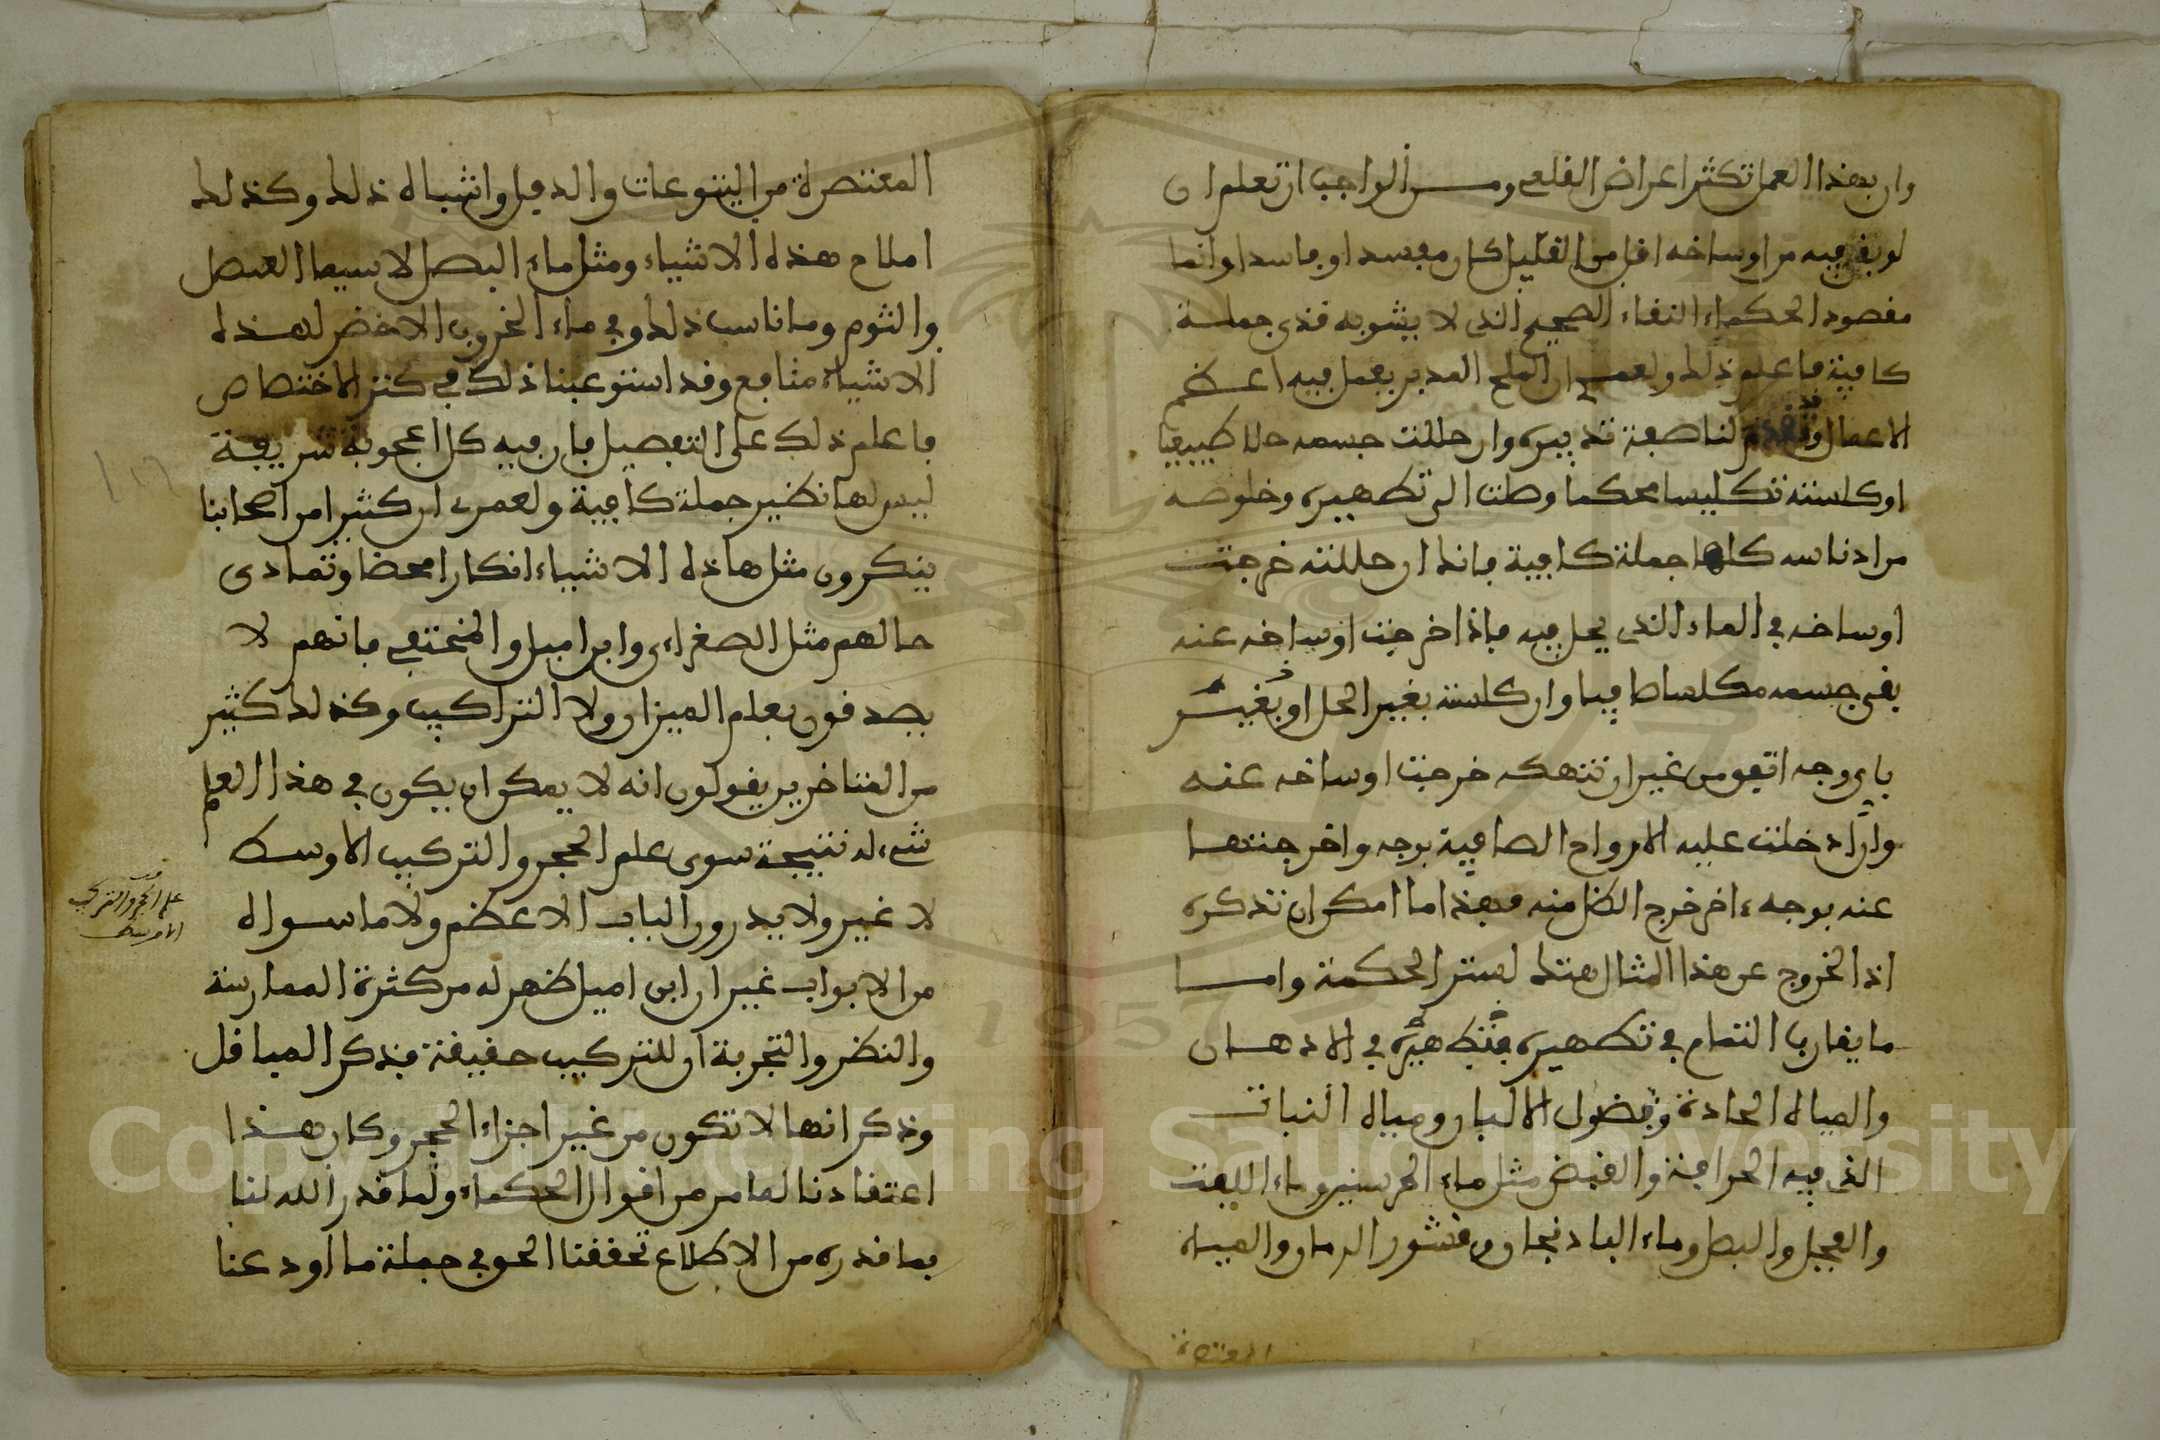 وان بهذا العمل تكثر اعراض القلعي ومن الواجب ان تعلم ان
لو بقي فيه من اوساخه اقل من القليل كان مفسدا او فاسدا وانما
مقصود الحكماء النقاء الصحيح الذي لا يشوبه قذى جملة
كافية فاعلم ذلك ولعمري ان الملح المدبر يفعل فيه اعظم
الاعمال وقد تقدم لنا صفة تدبيره وان حللت جسمه حلا طبيعيا
او كلسته تكليسا محكما وصلت الى تطهيره وخلوصه
من ادناسه كلها جملة كافية فانك ان حللته خرجت
اوساخه في الماء الذي يحل فيه فاذا خرجت اوساخه عنه
بقي جسمه مكلسا صافيا وان كلسته بغير الحل او بغير
باي وجه اتفق من غير ان تنهكه خرجت اوساخه عنه
وان ادخلت عليه الارواح الصافية بوجه واخرجتها
عنه بوجه ءاخر خرج الظل منه فهذا ما امكن ان نذكره
اذ الخروج عن هذا المثال هتك لستر الحكمة واما
ما يقارب التمام في تطهيره فتطهيره في الادهان
والمياه الحادة وفضول الالبان ومياه النبات
الذي فيه الحرافة والقبض مثل ماء الحرسنير وماء اللفت
والفجل والبصل وماء الباذنجان وقشور الرمان والمياه
المعتصرة
المعتصرة من اليتوعات والدفل واشباه ذلك وكذلك
املاح هذه الاشياء ومثل ماء البصل لا سيما العنصل
والثوم وما ناسب ذلك وفي ماء الخروب الاخضر لهذه
الاشياء منافع وقد استوعبنا ذلك في كنز الاختصاص
فاعلم ذلك على التفصيل فان فيه كل اعجوبة شريفة
ليس لها نظير جملة كافية ولعمري ان كثيرا من اصحابنا
ينكرون مثل هاذه الاشياء انكارا محضا وتمادى
حالهم مثل الصغراى وابن اميل والمنحتفي فانهم لا
يصدقون بعلم الميزان ولا التراكيب وكذلك كثير
من المتاخرين يقولون انه لا يمكن ان يكون في هذا العلم
شيء له نتيجة سوى علم الحجر والتركيب الاوسط
لا غير ولا يدرون الباب الاعظم ولا ما سواه
من الابواب غير ان ابن اميل ظهر له من كثرة الممارسة
والنظر والتجربة ان للتركيب حقيقة فذكر الميافل
وذكر انها لا تكون من غير اجزاء الحجر وكان هذا
اعتقادنا لما مر من اقوال الحكماء ولما قدر الله لنا
بما قدره من الاطلاع تحققنا الحق في جملة ما اودعنا
علم الحجر والتركيب
الاوسط